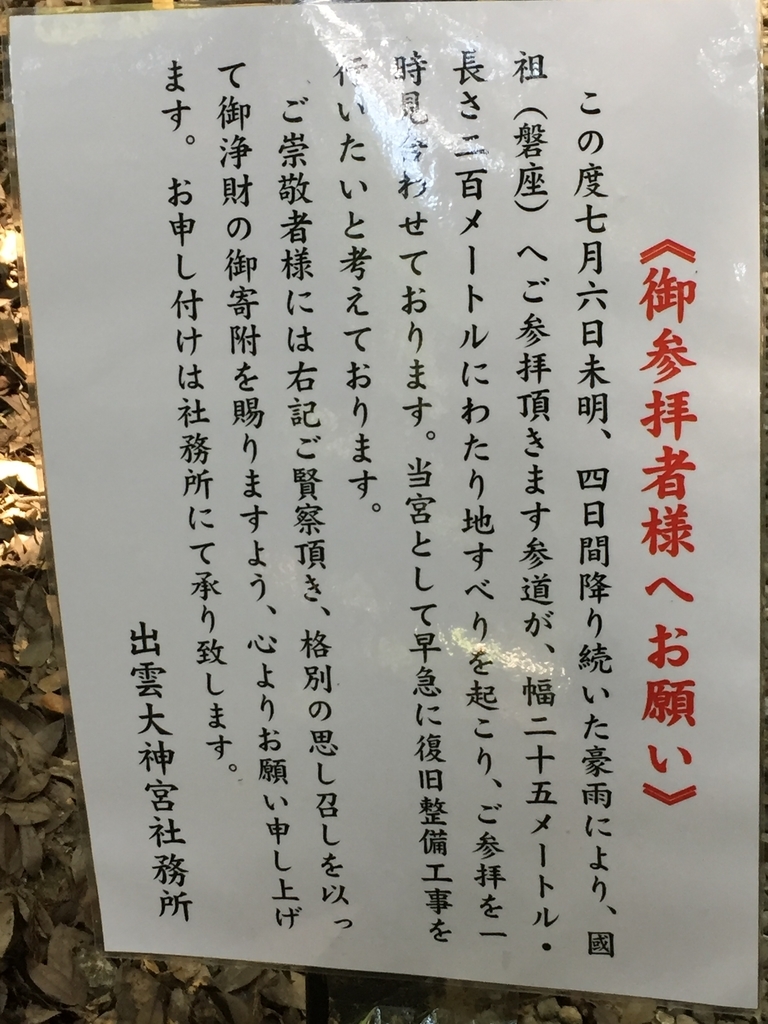 《御参拝者様へお願い》
この度七月六日未明、四日間降り続いた豪雨により、國
祖（磐座）へご参拝頂きます参道が、幅二十五メートル・
長さ二百メートルにわたり地すべりを起こり、ご参拝を一
時見合わせております。当宮として早急に復旧整備工事を
行いたいと考えております。
ご崇敬者様には右記ご賢察頂き、格別の思し召しを以っ
て御浄財の御寄附を賜りますよう、心よりお願い申し上げ
ます。お申し付けは社務所にて承り致します。
出雲大神宮社務所